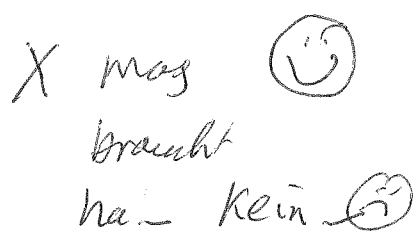 X mag
braucht
ha - kein -